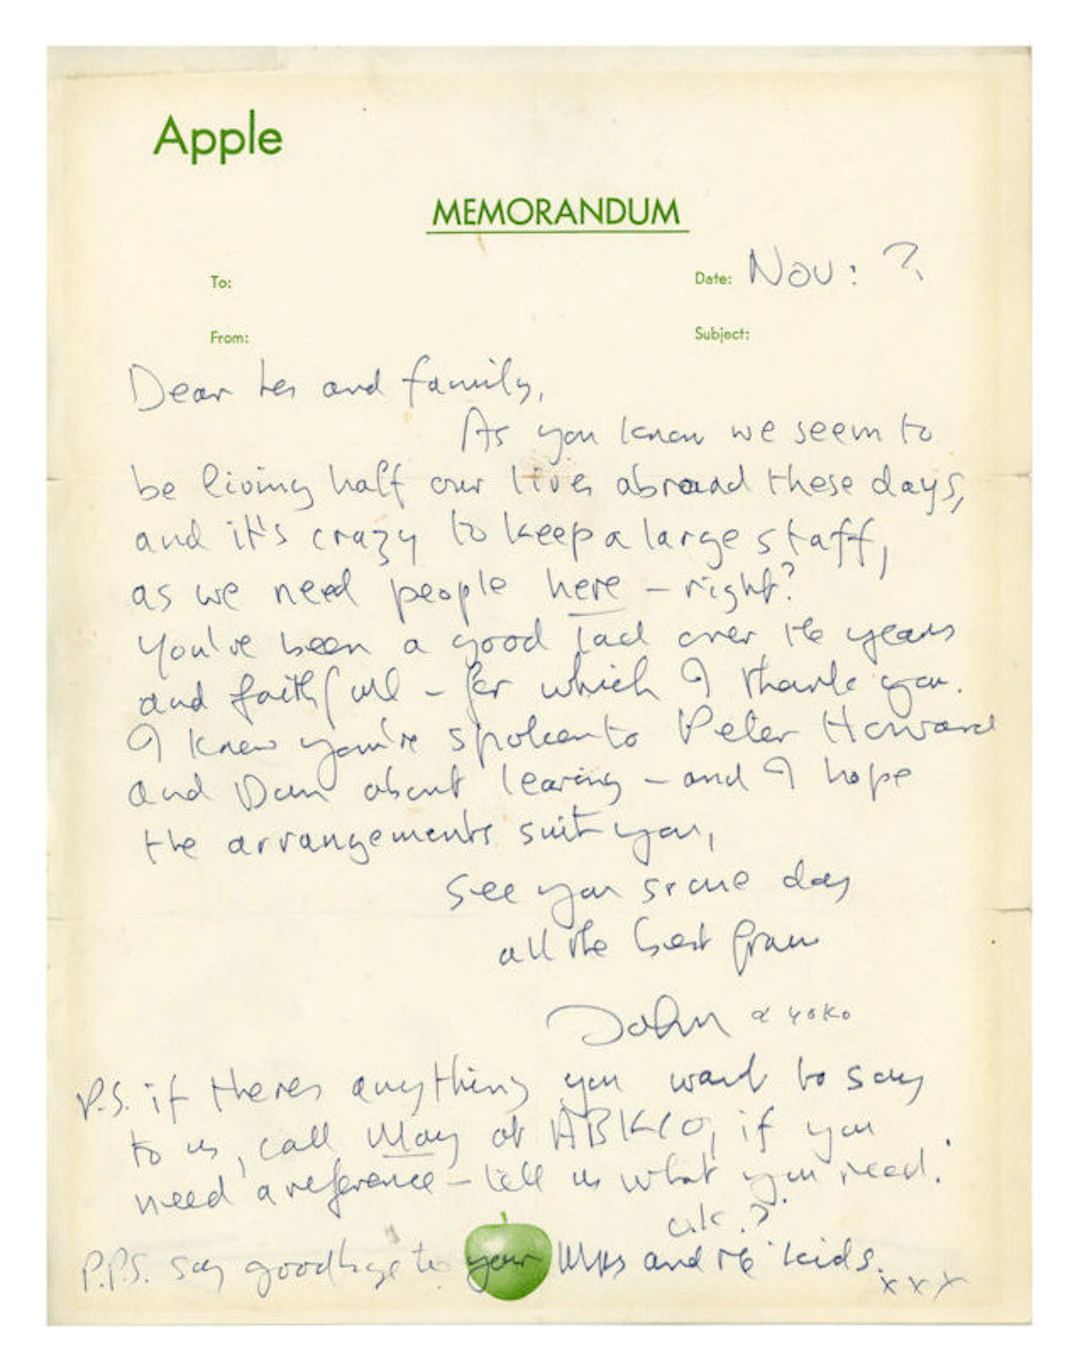 Apple
MEMORANDUM
To:
Date: Nov: ?
From:
Subject:
Dear Les and family,
As you know we seem to
be living half our lives abroad these days,
and it's crazy to keep a large staff,
as we need people here – right?
You've been a good lad over the years
and faithfull – for which I thank you.
I know you're spoken to Peter Howard
and Dan about leaving – and I hope
the arrangements suit you,
see you some day
all the best from
John & yoko
P.S. if theres anything you want to say
to us, call May at ABKCO, if you
need a reference – tell us what you need.
o.k.?
P.P.S. say goodbye to your Mrs and the kids.
x x x